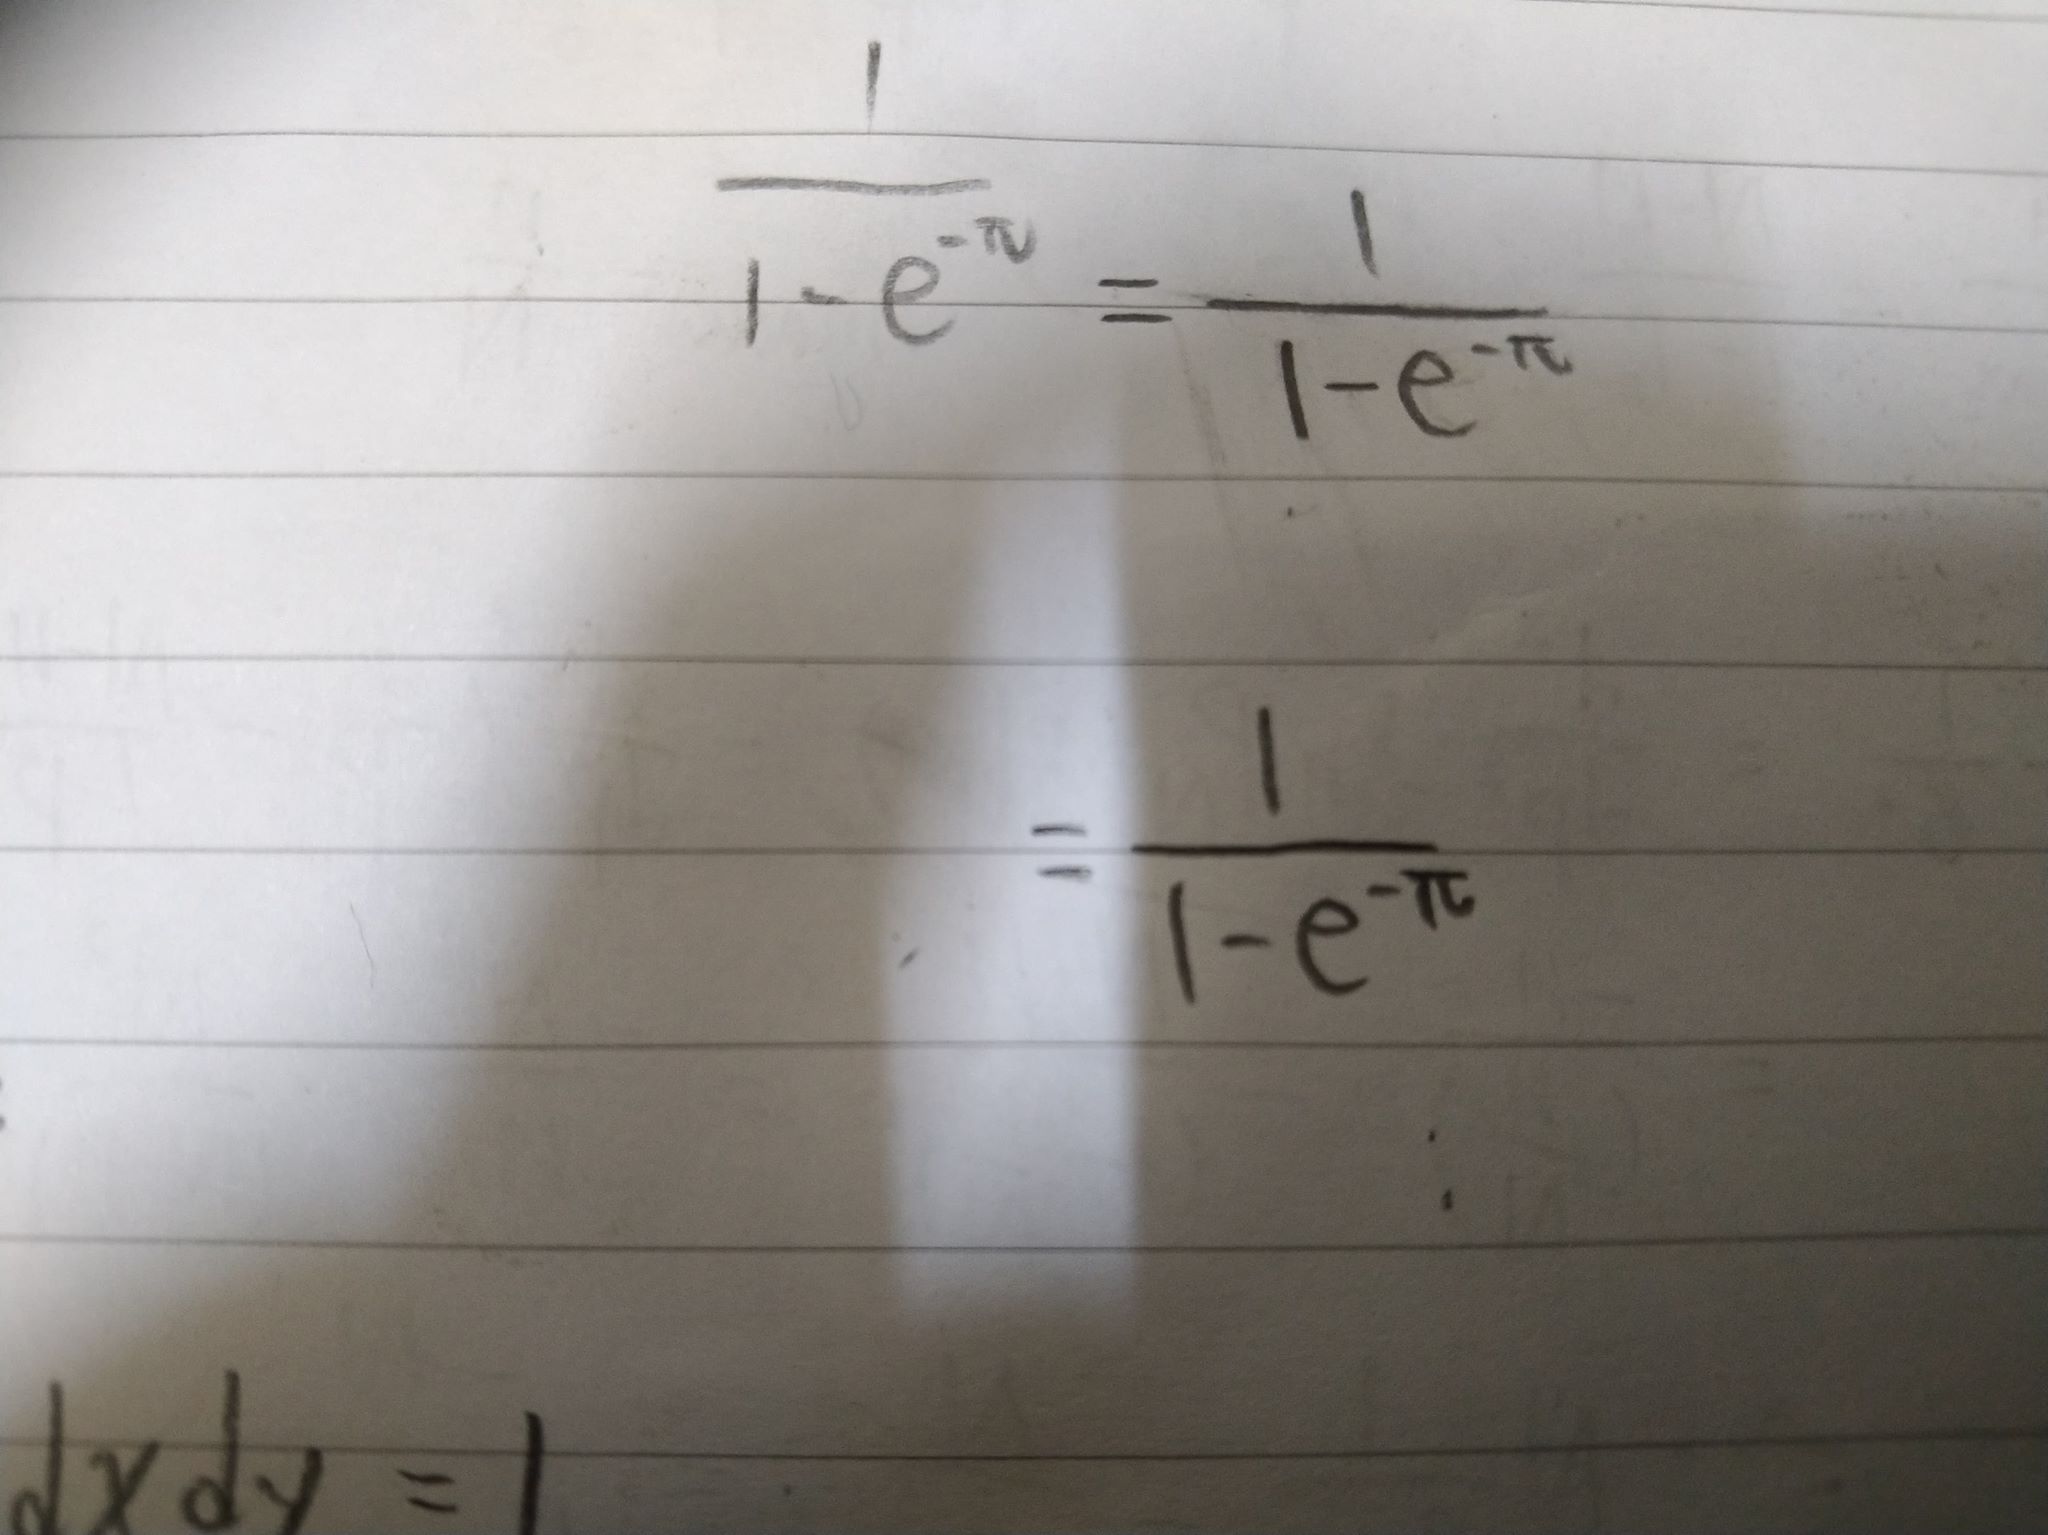 1/(1-e^{-π}) = 1/(1-e^{-π})
= 1/(1-e^{-π})
dxdy = 1